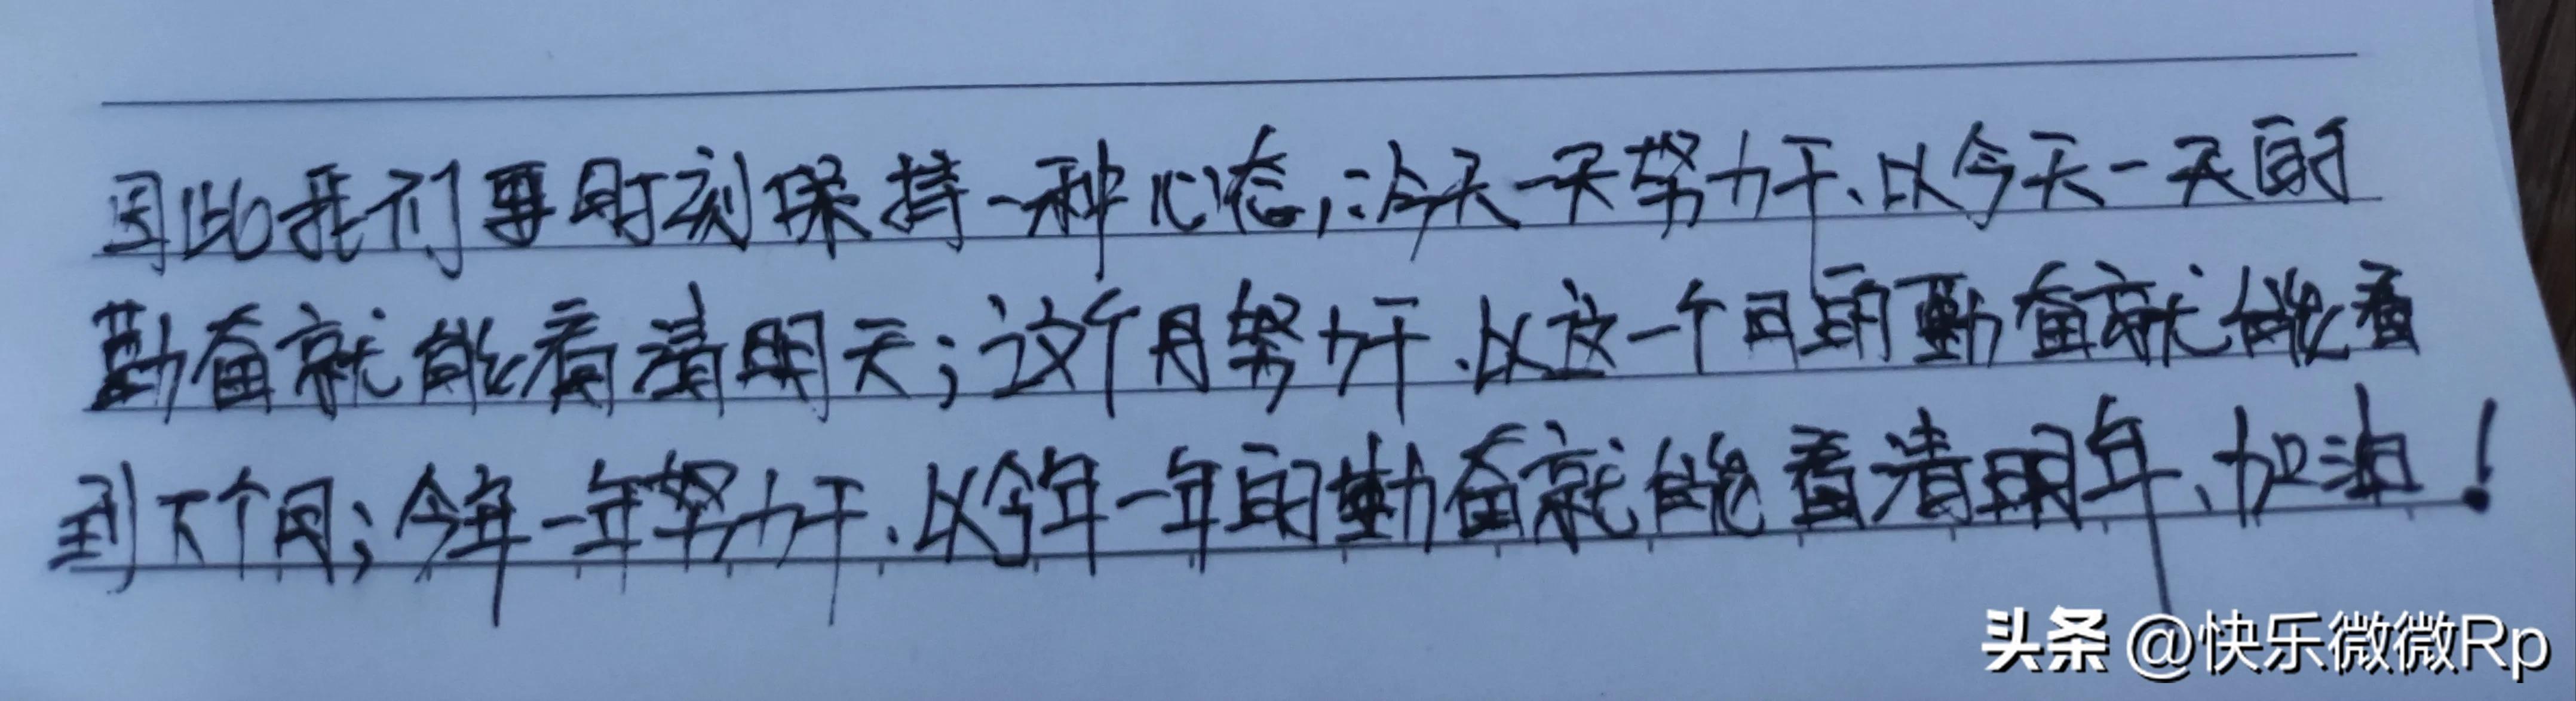 因此我们要时刻保持一种心态，：今天一天努力干、以今天一天的
勤奋就能看清明天；这个月努力干、以这一个月的勤奋就能看
到下个月；今年一年努力干、以今年一年的勤奋就能看清明年、加油！
头条 @快乐微微Rp